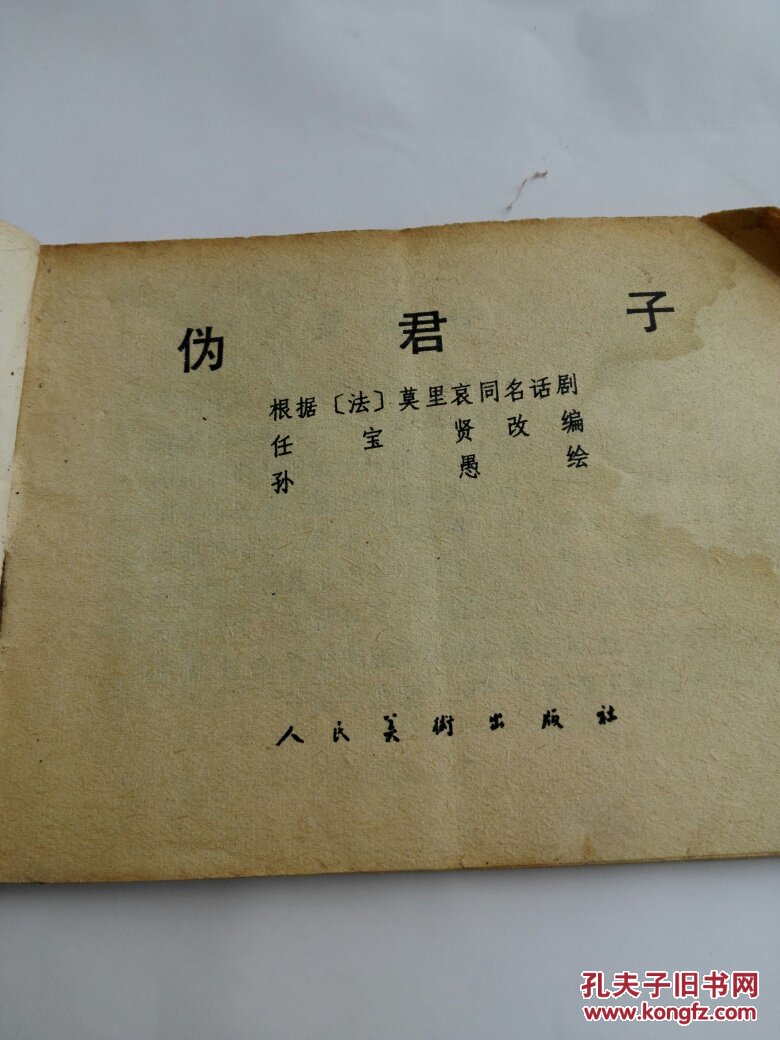 伪君子
根据〔法〕莫里哀同名话剧
任宝贤改编
孙愚绘
人民美術出版社
孔夫子旧书网
www.kongfz.com